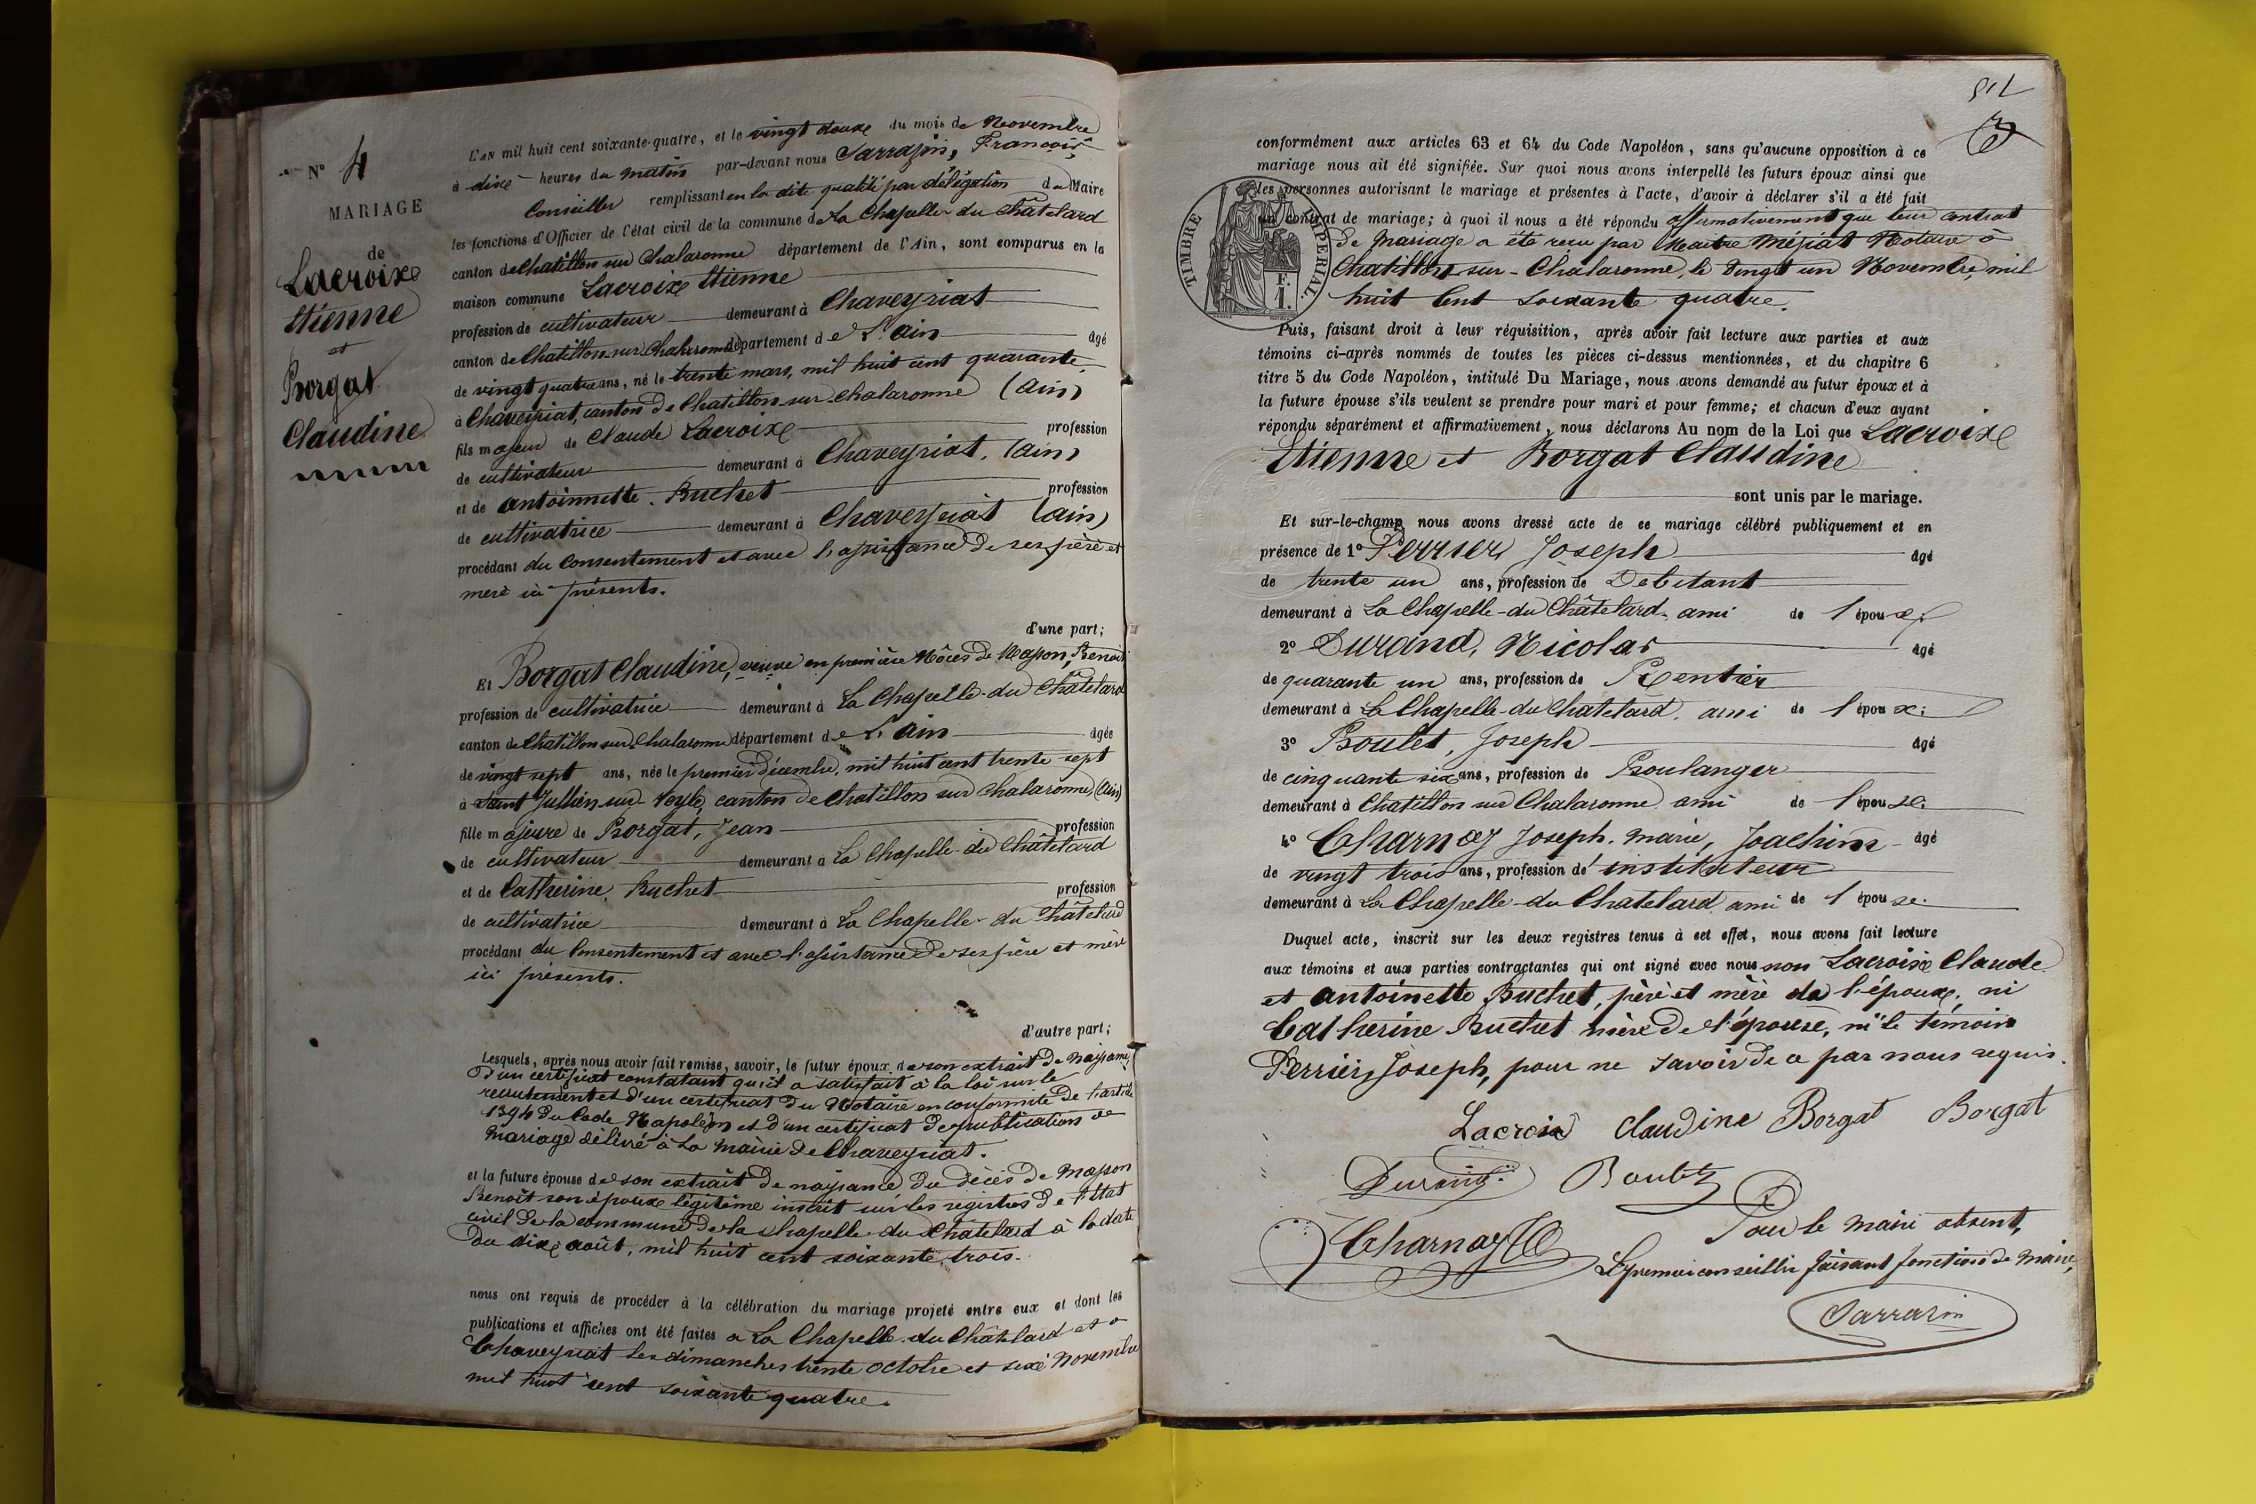 N° 4
MARIAGE
de
Lacroix
Etienne
et
Borgat
Claudine
L'AN mil huit cent soixante-quatre, et le vingt deux du mois de Novembre
à dix heures du matin par-devant nous Sarrasin, François,
Conseiller remplissant en la dite qualité par délégation du Maire
les fonctions d'Officier de l'état civil de la commune de La Chapelle du Châtelard
canton de Chatillon sur Chalaronne département de l'Ain, sont comparus en la
maison commune Lacroix Etienne
profession de cultivateur demeurant à Chaveyriat
canton de Chatillon sur Chalaronne département de L'ain âgé
de vingt quatre ans, né le trente mars, mil huit cent quarante
à Chaveyriat, canton de Chatillon sur Chalaronne (Ain)
fils majeur de Claude Lacroix profession
de cultivateur demeurant à Chaveyriat, (ain)
et de antoinnette Buchet profession
de cultivatrice demeurant à Chaveyriat (ain)
procédant du Consentement et avec l'assistance de ses père et
mère ici présents.
d'une part;
Et Borgat Claudine, veuve en première Nôces de Masson, Benoit
profession de cultivatrice demeurant à La Chapelle-du Châtelard
canton de Chatillon sur Chalaronne département de L'Ain âgée
de vingt sept ans, née le premier décembre, mil huit cent trente-sept
à Saint Jullien sur Veyle, canton de Chatillon sur Chalaronne (Ain)
fille majeure de Borgat, Jean profession
de cultivateur demeurant à La Chapelle-du Châtelard
et de Catherine Buchet profession
de cultivatrice demeurant à La Chapelle-du Châtelard
procédant du Consentement et avec l'assistance de ses père et mère
ici présents.
d'autre part;
Lesquels, après nous avoir fait remise, savoir, le futur époux de son extrait de Naissance,
d'un certificat constatant qu'il a satisfait à la loi sur le
recrutement et d'un certificat du Notaire en conformité de l'article
1394 du Code Napoléon et d'un certificat de publications de
mariage délivré à La Mairie de Chaveyriat.
et la future épouse de son extrait de naissance du décès de Masson
Benoît son époux légitime inscrit sur les registres de l'Etat
civil de la commune de la Chapelle-du Châtelard à la date
du dix août, mil huit cent soixante trois.
nous ont requis de procéder à la célébration du mariage projeté entre eux et dont les
publications et affiches ont été faites a La Chapelle-du Châtelard et à
Chaveyriat les dimanches trente octobre et six Novembre
mil huit cent soixante quatre.
conformément aux articles 63 et 64 du Code Napoléon, sans qu'aucune opposition à ce
mariage nous ait été signifiée. Sur quoi nous avons interpellé les futurs époux ainsi que
les personnes autorisant le mariage et présentes à l'acte, d'avoir à déclarer s'il a été fait
un contrat de mariage; à quoi il nous a été répondu affirmativement que leur contrat
de Mariage a été recu par Maitre Notaire à
Chatillon-sur-Chalaronne, le vingt un Novembre, mil
huit Cent soixante quatre.
TIMBRE IMPERIAL.
1 F.
Puis, faisant droit à leur réquisition, après avoir fait lecture aux parties et aux
témoins ci-après nommés de toutes les pièces ci-dessus mentionnées, et du chapitre 6
titre 5 du Code Napoléon, intitulé Du Mariage, nous avons demandé au futur époux et à
la future épouse s'ils veulent se prendre pour mari et pour femme; et chacun d'eux ayant
répondu séparément et affirmativement, nous déclarons Au nom de la Loi que Lacroix
Etienne et Borgat Claudine
sont unis par le mariage.
Et sur-le-champ nous avons dressé acte de ce mariage célébré publiquement et en
présence de 1° Perrier Joseph âgé
de trente un ans, profession de Debitant
demeurant à La Chapelle-du Châtelard, ami de l'époux;
2° Durand, Nicolas âgé
de quarante un ans, profession de Rentier
demeurant à La Chapelle-du Chatelard, ami de l'époux;
3° Boulet, Joseph âgé
de cinquante six ans, profession de Boulanger
demeurant à Chatillon sur Chalaronne ami de l'épouse.
4° Charnay Joseph. Marie, Joachim âgé
de vingt trois ans, profession d'instituteur
demeurant à La Chapelle-du Chatelard ami de l'épouse.
Duquel acte, inscrit sur les deux registres tenus à cet effet, nous avons fait lecture
aux témoins et aux parties contractantes qui ont signé avec nous non Lacroix Claude
et antoinette Buchet, père et mère de l'époux, ni
Catherine Buchet mère de l'épouse, ni le témoin
Perrier, Joseph, pour ne savoir de ce par nous requis.
Lacroix Claudine Borgat Borgat
Durand Boulet
Charnay Pour le maire absent,
Le premier conseiller faisant fonctions de Maire,
Sarrasin